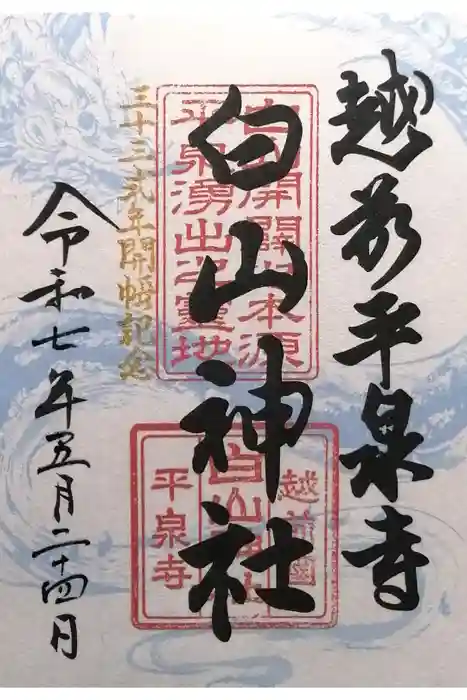 越前平泉寺
白山神社
三十三式年開帳記念
令和七年五月二十四日
白山開闢之本源
平泉湧出之霊地
越前國
白山神社
平泉寺